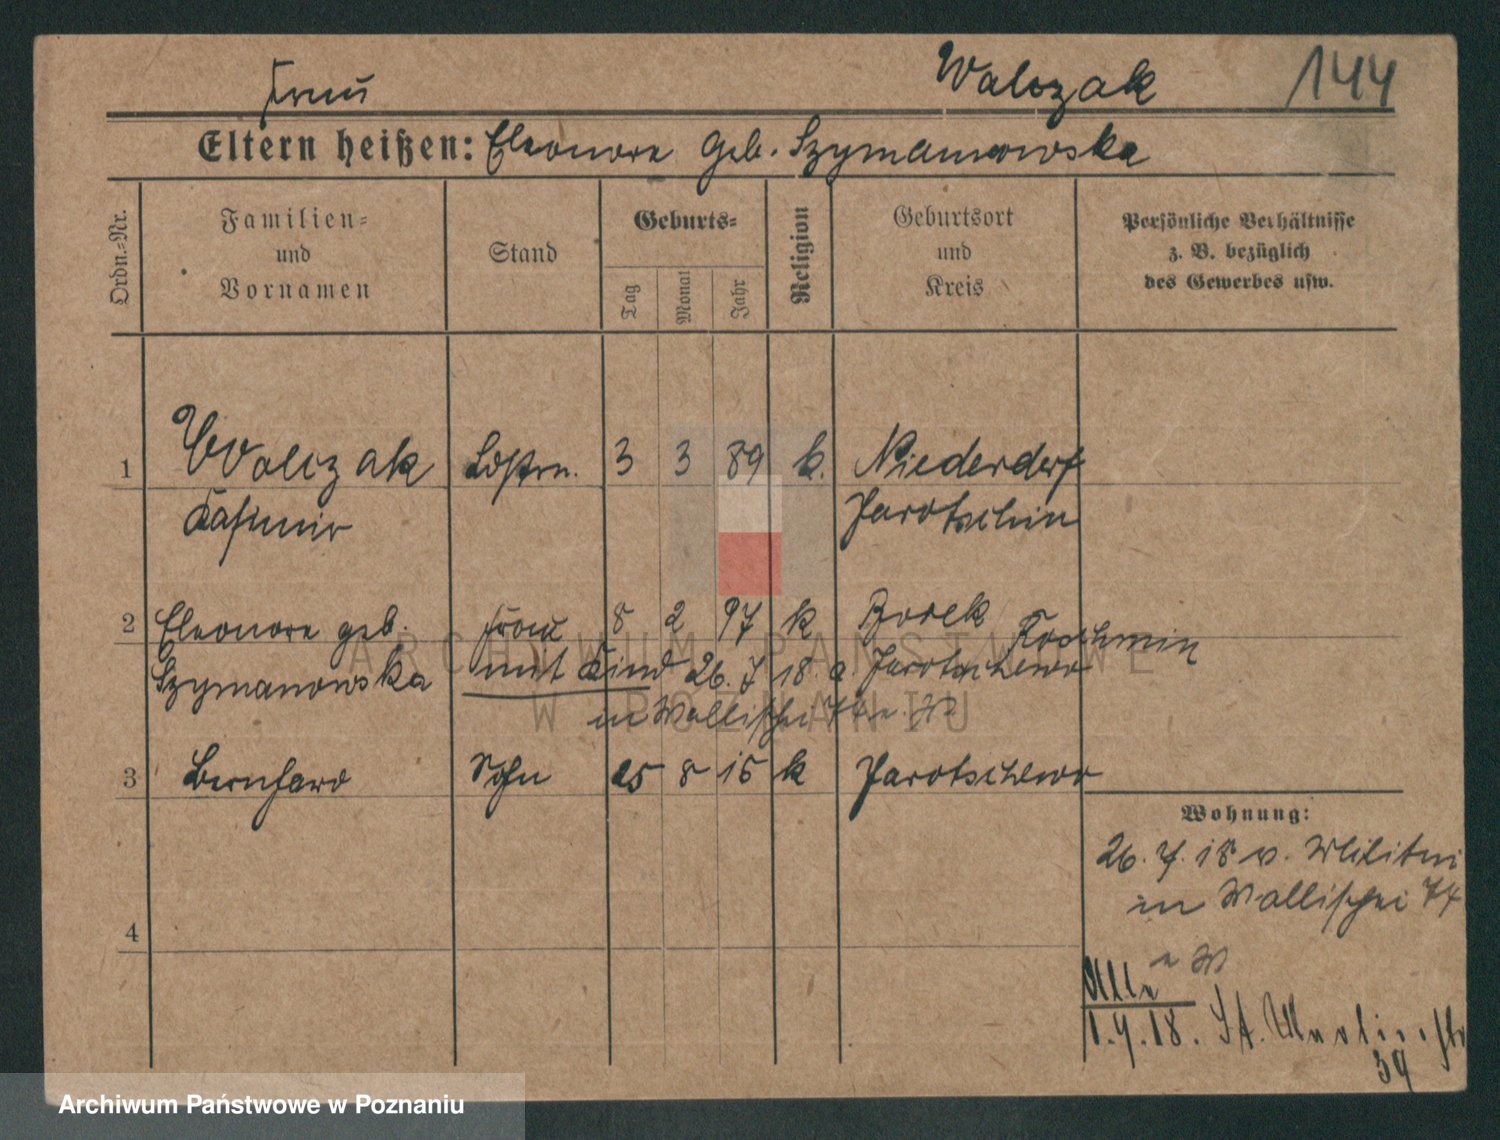 Frau Walczak 144
Eltern heißen: Eleonore geb. Szymanowska
Ordn.=Nr.
Familien=
und
Vornamen
Stand
Geburts=
Tag
Monat
Jahr
Religion
Geburtsort
und
Kreis
Persönliche Verhältnisse
z. B. bezüglich
des Gewerbes usw.
1 Walczak 3 3 89 k. Niederdorf
Kasimir Jarotschin
2 Eleonore geb. Frau 8 2 97 k Borek Koschmin
Szymanowska mit Kind 26. 7 18. a. Jarotschewo
in Wallischei
3 Bernhard Sohn 25 8 15 k Jarotschewo
4
Wohnung:
26. 7. 18 v.
in Wallischei 74
Alle
1.9.18. St. Martinstr
39
ARCHIWUM PAŃSTWOWE
W POZNANIU
Archiwum Państwowe w Poznaniu